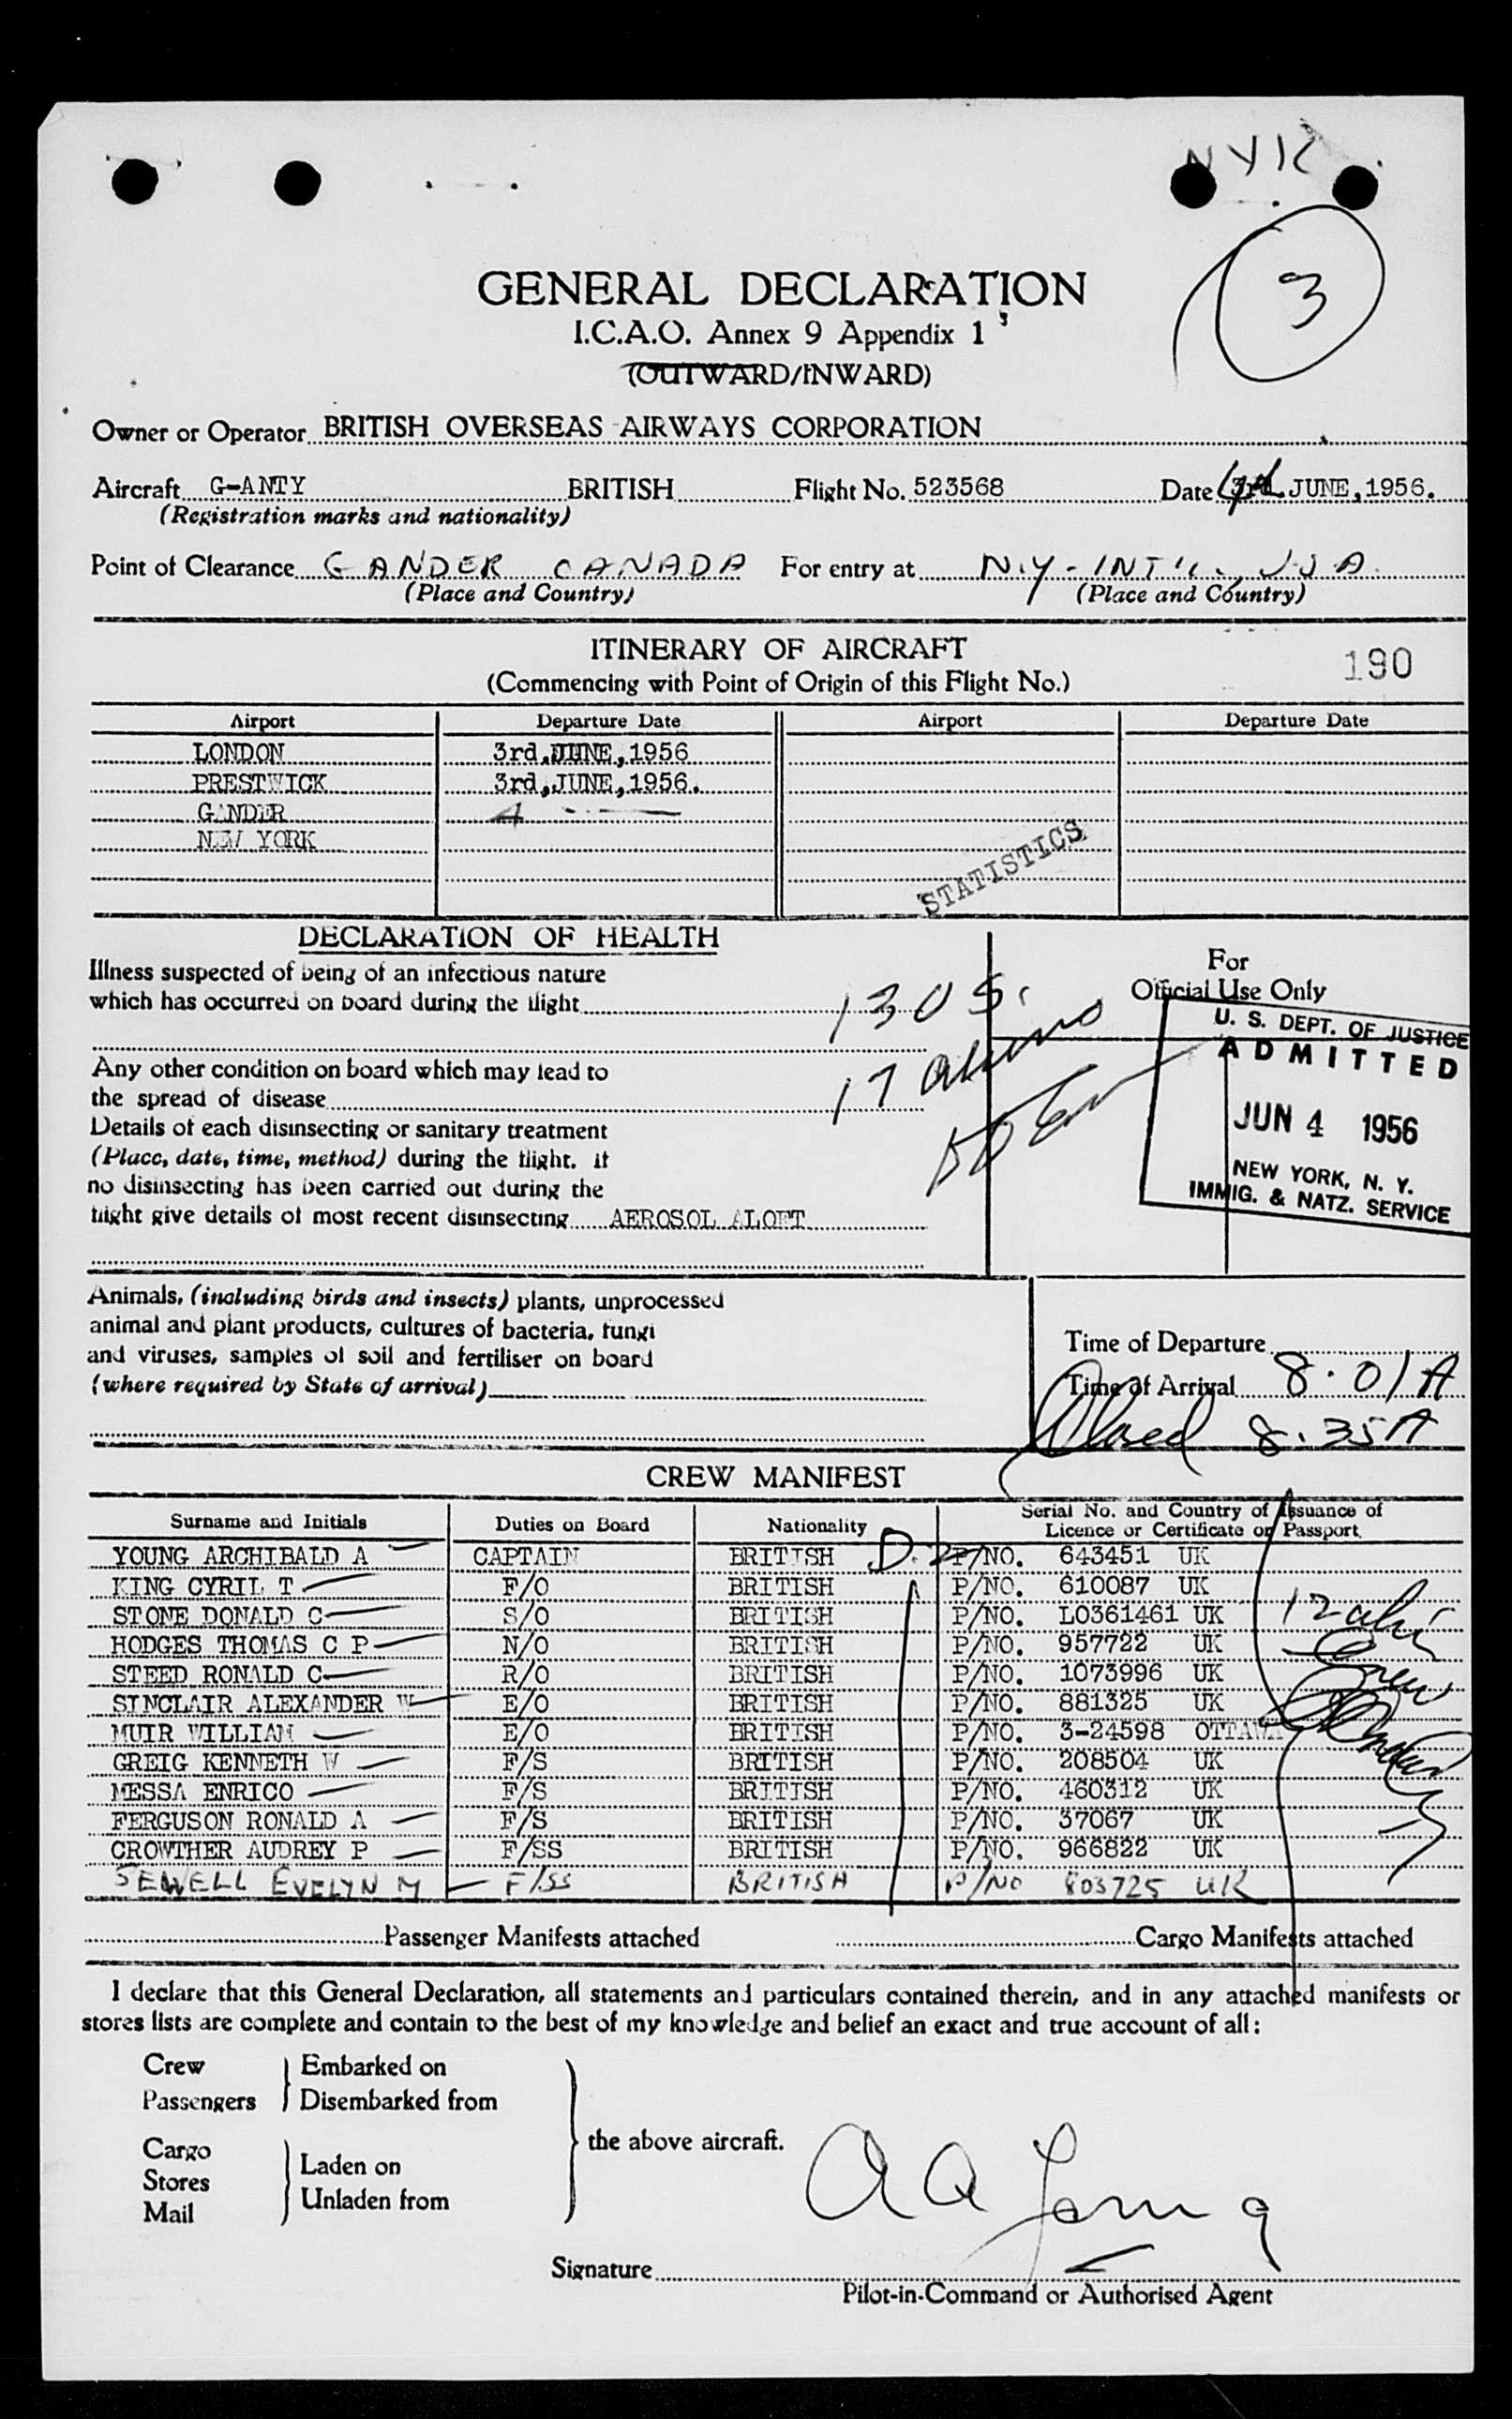 NYK
3
GENERAL DECLARATION
I.C.A.O. Annex 9 Appendix 1
(OUTWARD/INWARD)
Owner or Operator BRITISH OVERSEAS AIRWAYS CORPORATION
Aircraft G-ANTY BRITISH Flight No. 523568 Date 3rd JUNE, 1956.
(Registration marks and nationality)
Point of Clearance GANDER CANADA For entry at N.Y-INT'L, USA
(Place and Country) (Place and Country)
ITINERARY OF AIRCRAFT
(Commencing with Point of Origin of this Flight No.)
190
Airport Departure Date Airport Departure Date
LONDON 3rd,JUNE,1956
PRESTWICK 3rd,JUNE,1956.
GANDER 4
NEW YORK
STATISTICS
DECLARATION OF HEALTH
Illness suspected of being of an infectious nature
which has occurred on board during the flight
Any other condition on board which may lead to
the spread of disease
Details of each disinsecting or sanitary treatment
(Place, date, time, method) during the flight. If
no disinsecting has been carried out during the
flight give details of most recent disinsecting AEROSOL ALOFT
17
For
Official Use Only
U. S. DEPT. OF JUSTICE
ADMITTED
JUN 4 1956
NEW YORK, N. Y.
IMMIG. & NATZ. SERVICE
Animals, (including birds and insects) plants, unprocessed
animal and plant products, cultures of bacteria, fungi
and viruses, samples of soil and fertiliser on board
(where required by State of arrival)
Time of Departure
Time of Arrival 8.01A
Closed 8.35A
CREW MANIFEST
Surname and Initials Duties on Board Nationality Serial No. and Country of Issuance of Licence or Certificate or Passport
YOUNG ARCHIBALD A CAPTAIN BRITISH P/NO. 643451 UK
KING CYRIL T F/O BRITISH P/NO. 610087 UK
STONE DONALD C S/O BRITISH P/NO. L0361461 UK
HODGES THOMAS C P N/O BRITISH P/NO. 957722 UK
STEED RONALD C R/O BRITISH P/NO. 1073996 UK
SINCLAIR ALEXANDER W E/O BRITISH P/NO. 881325 UK
MUIR WILLIAM E/O BRITISH P/NO. 3-24598 OTTAWA
GREIG KENNETH W F/S BRITISH P/NO. 208504 UK
MESSA ENRICO F/S BRITISH P/NO. 460312 UK
FERGUSON RONALD A F/S BRITISH P/NO. 37067 UK
CROWTHER AUDREY P F/SS BRITISH P/NO. 966822 UK
SEWELL EVELYN M F/SS BRITISH P/NO 803725 UK
Passenger Manifests attached Cargo Manifests attached
I declare that this General Declaration, all statements and particulars contained therein, and in any attached manifests or
stores lists are complete and contain to the best of my knowledge and belief an exact and true account of all:
Crew Embarked on
Passengers Disembarked from
the above aircraft.
Cargo
Stores Laden on
Mail Unladen from
A A Young
Signature
Pilot-in-Command or Authorised Agent